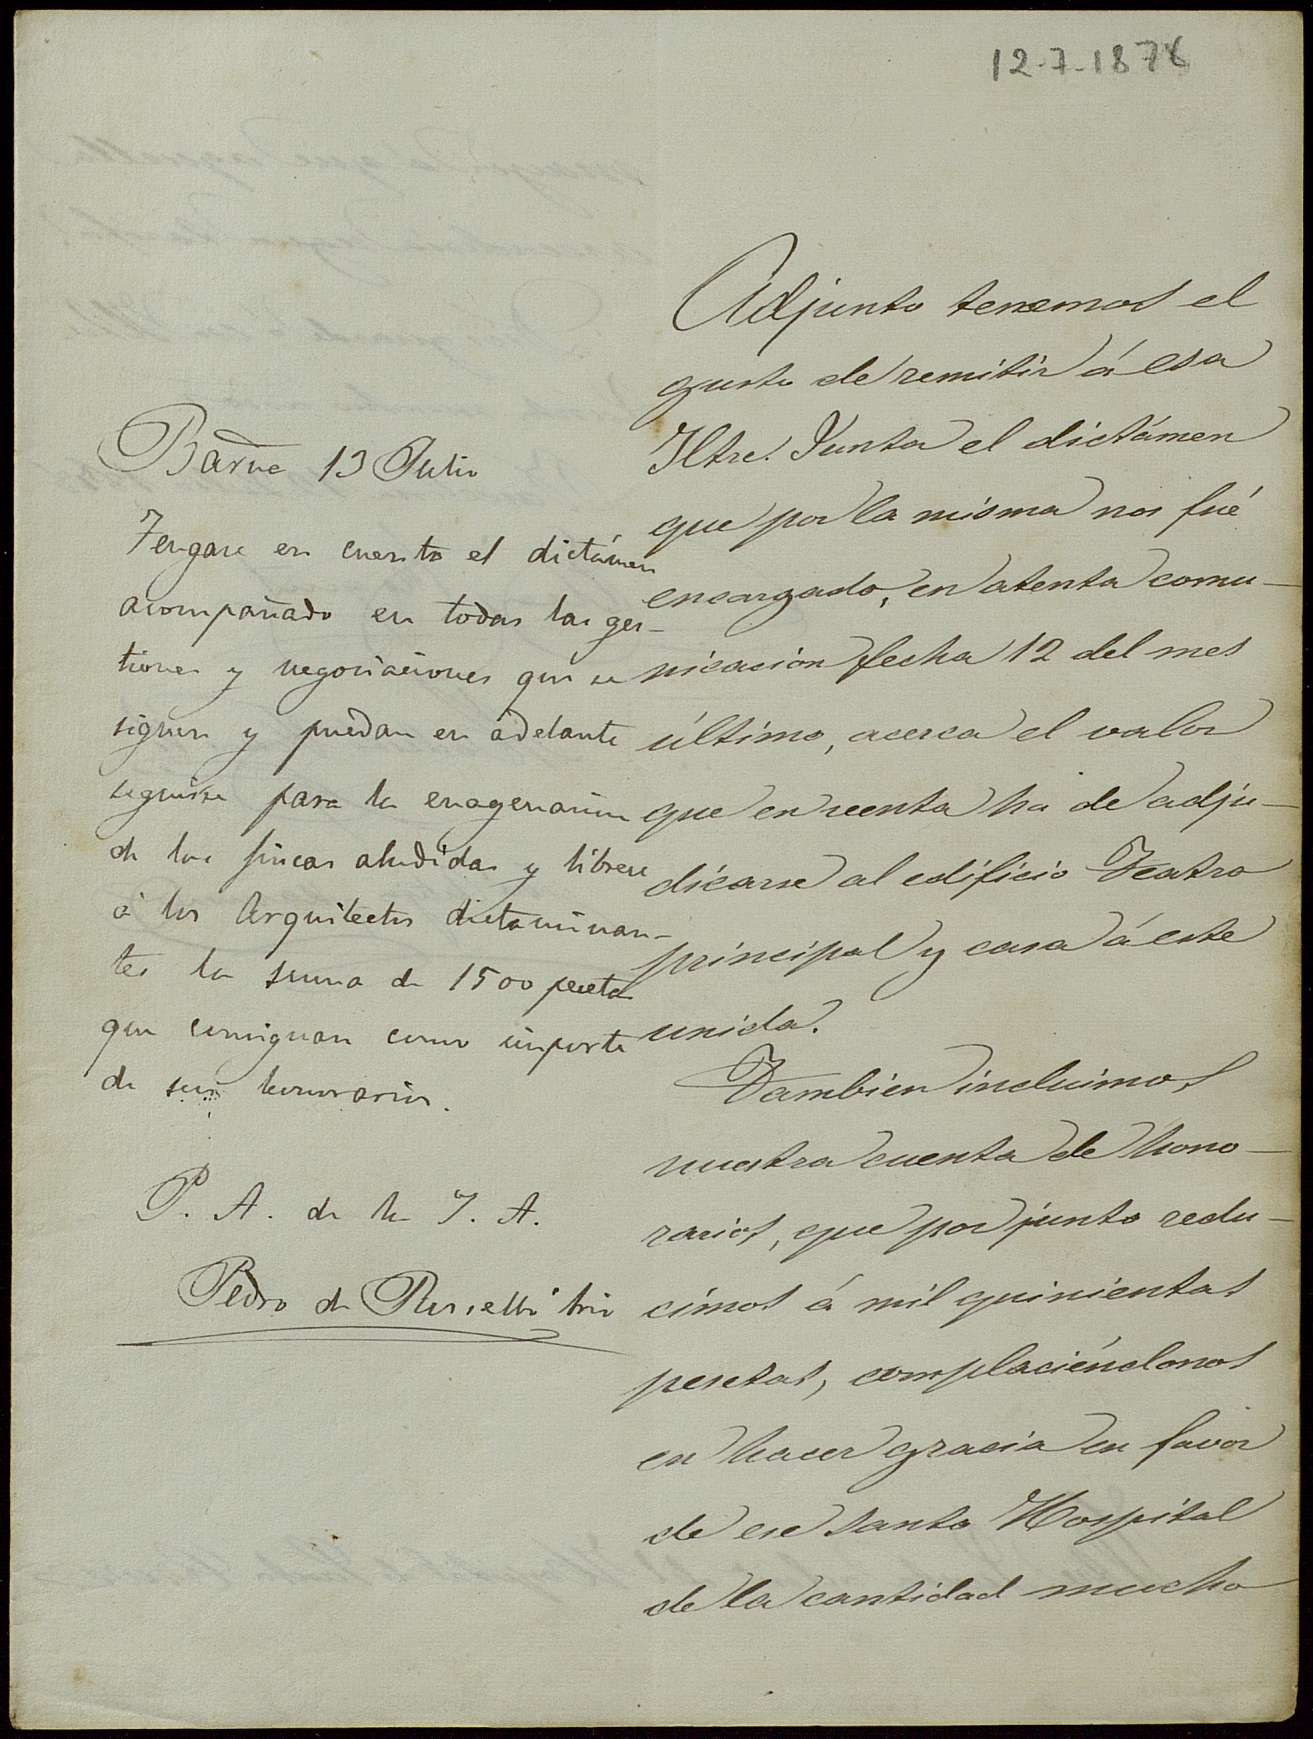 12-7-1878
Adjunto tenemos el
gusto de remitir á esa
Iltre. Junta el dictámen
que por la misma nos fué
encargado, en atenta comu-
nicacion fecha 12 del mes
último, acerca el valor
que en renta ha de adju-
dicarse al edificio Teatro
principal y casa á este
unida.
Tambien incluimos
nuestra cuenta de hono-
rarios, que por junto redu-
cimos á mil quinientas
pesetas, complaciéndonos
en hacer gracia en favor
de ese Santo Hospital
de la cantidad mucho
Barna 13 Julio
Tengase en cuenta el dictámen
acompañado en todas las ges-
tiones y negociaciones que se
siguen y puedan en adelante
seguirse para la enagenacion
de las fincas aludidas y librese
á los Arquitectos dictaminan-
tes la suma de 1500 pesetas
que consignan como importe
de sus honorarios.
P. A. de la I. A.
Pedro de Rosselló